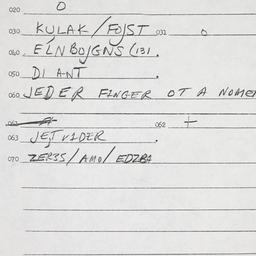 020 O
030 KULAK/FOJST 031 O
040 ELNBOJGNS (131.
050 DI ANT
060 JEDER FINGER OT A NOMEN
062 +
063 JETVIDER
070 ZER35/AMO/EDZBA